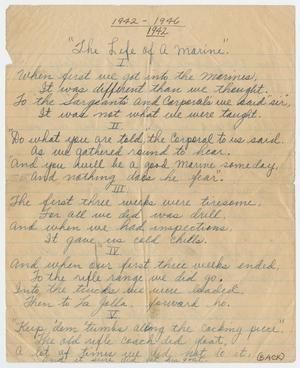 1942 - 1946
1942
"The Life of A Marine".
I
When first we got into the Marines,
It was different than we thought.
To the Sargeants and Corporals we said sir,
It was not what we were taught.
II
"Do what you are told," the Corporal to us said.
As we gathered round to hear.
And you will be a good Marine someday,
And nothing does he fear".
III
The first three weeks were tiresome.
For all we did was drill,
And when we had inspections,
It gave us cold chills.
IV
And when our first three weeks ended,
To the rifle range we did go.
Into the trucks we were loaded,
Then to La Jolla forward ho.
V
"Keep dem tumbs along the cocking piece"
The old rifle coach did
A lot of times we did not do it.
And it sure did
(BACK)